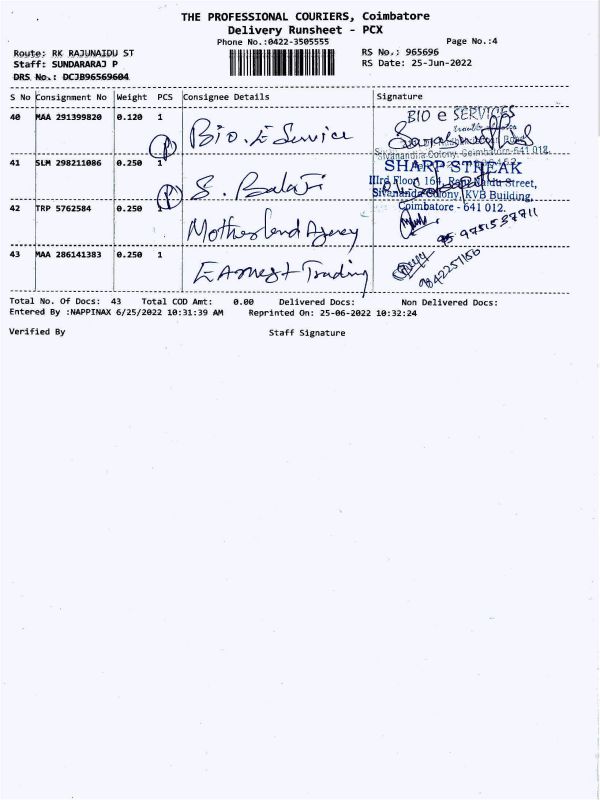 THE PROFESSIONAL COURIERS, Coimbatore
Delivery Runsheet - PCX
Phone No.:0422-3505555
Page No.:4
Route: RK RAJUNAIDU ST
RS No.: 965696
Staff: SUNDARARAJ P
RS Date: 25-Jun-2022
DRS No.: DCJB96569604
S No Consignment No Weight PCS Consignee Details Signature
40 MAA 291399820 0.120 1 Bio. E Service BIO e SERVICES
Sivanandha Colony, Coimbatore-641 012.
41 SLM 298211086 0.250 1 S. Balaji SHARP STREAK
IIIrd Floor 164, Raju Naidu Street,
Sivananda Colony, KVB Building,
Coimbatore - 641 012.
42 TRP 5762584 0.250 1 Motherland Agency
9751537711
43 MAA 286141383 0.250 1 EArnest Trading
9842257156
Total No. Of Docs: 43 Total COD Amt: 0.00 Delivered Docs: Non Delivered Docs:
Entered By :NAPPINAX 6/25/2022 10:31:39 AM Reprinted On: 25-06-2022 10:32:24
Verified By Staff Signature